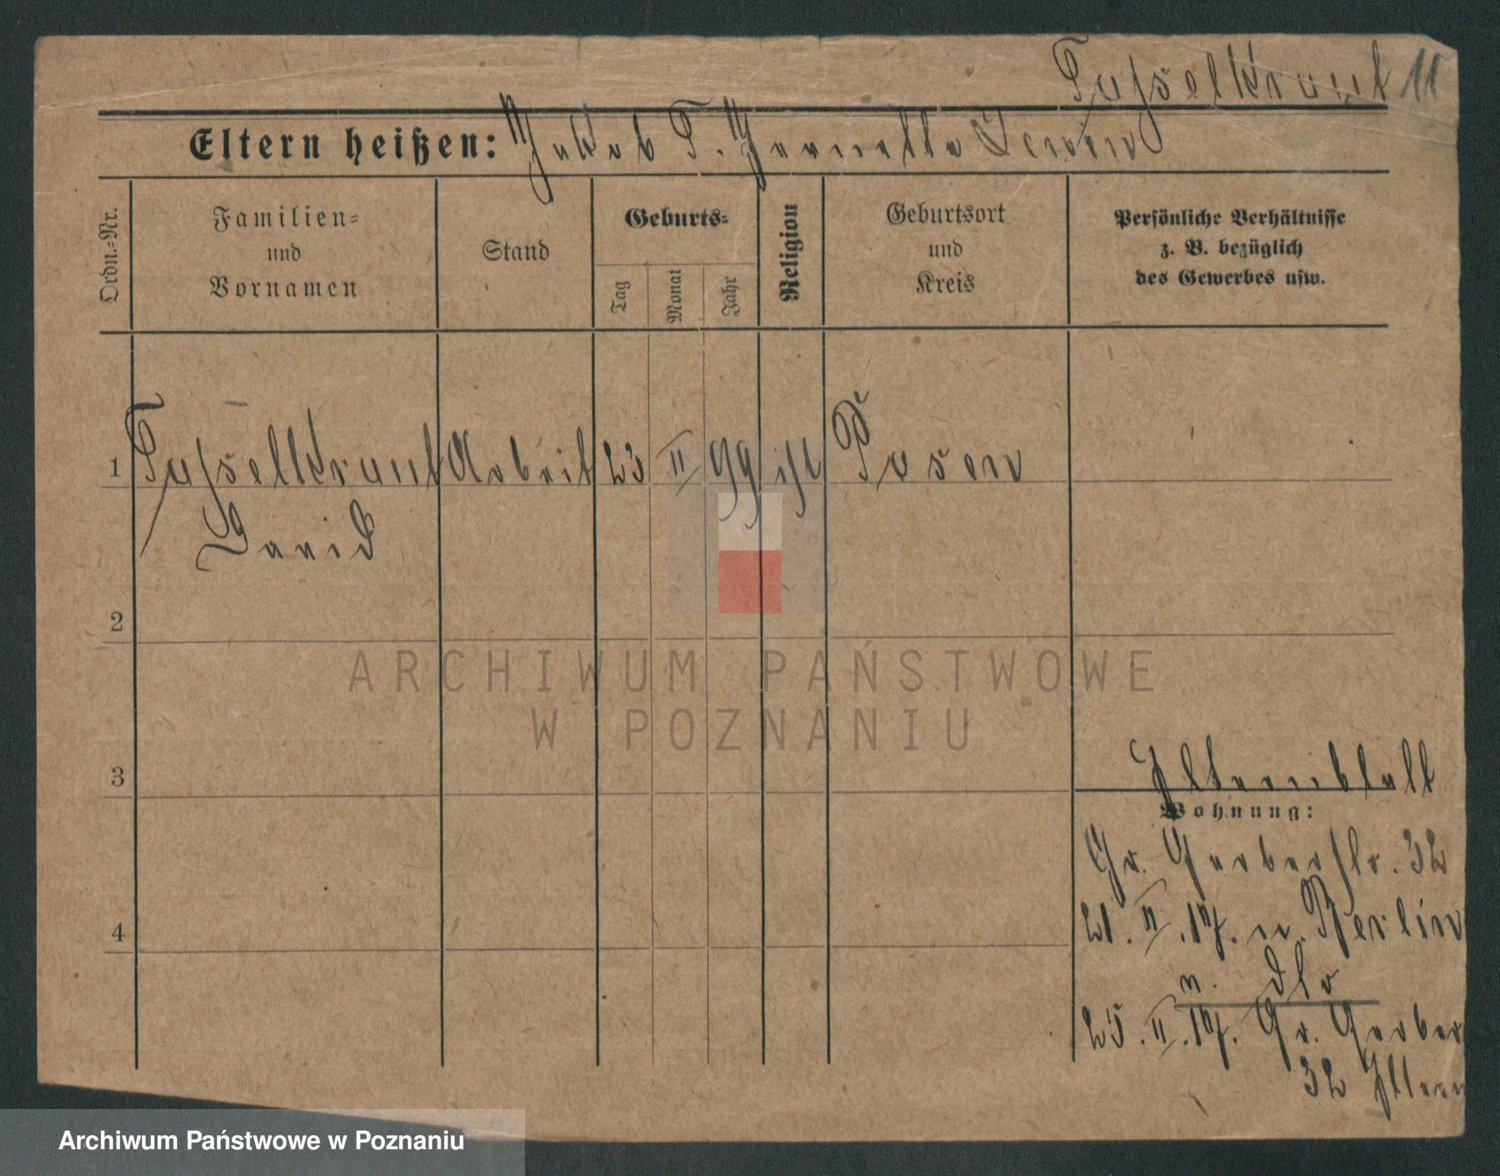 Tasselkraut 11
Eltern heißen: Jakob T. Jeanette Lewin
Ordn.-Nr.
Familien-
und
Vornamen
Stand
Geburts-
Tag
Monat
Jahr
Religion
Geburtsort
und
Kreis
Persönliche Verhältnisse
z. B. bezüglich
des Gewerbes usw.
1 Tasselkraut Arbeit 23 II 99 isr Posen
David
2
ARCHIWUM PAŃSTWOWE
W POZNANIU
3
Elternblatt
Wohnung:
Gr. Gerberstr. 32
21. II. 17. n. Berlin
n. dto
25. II. 17. Gr. Gerber
32 Eltern
4
Archiwum Państwowe w Poznaniu